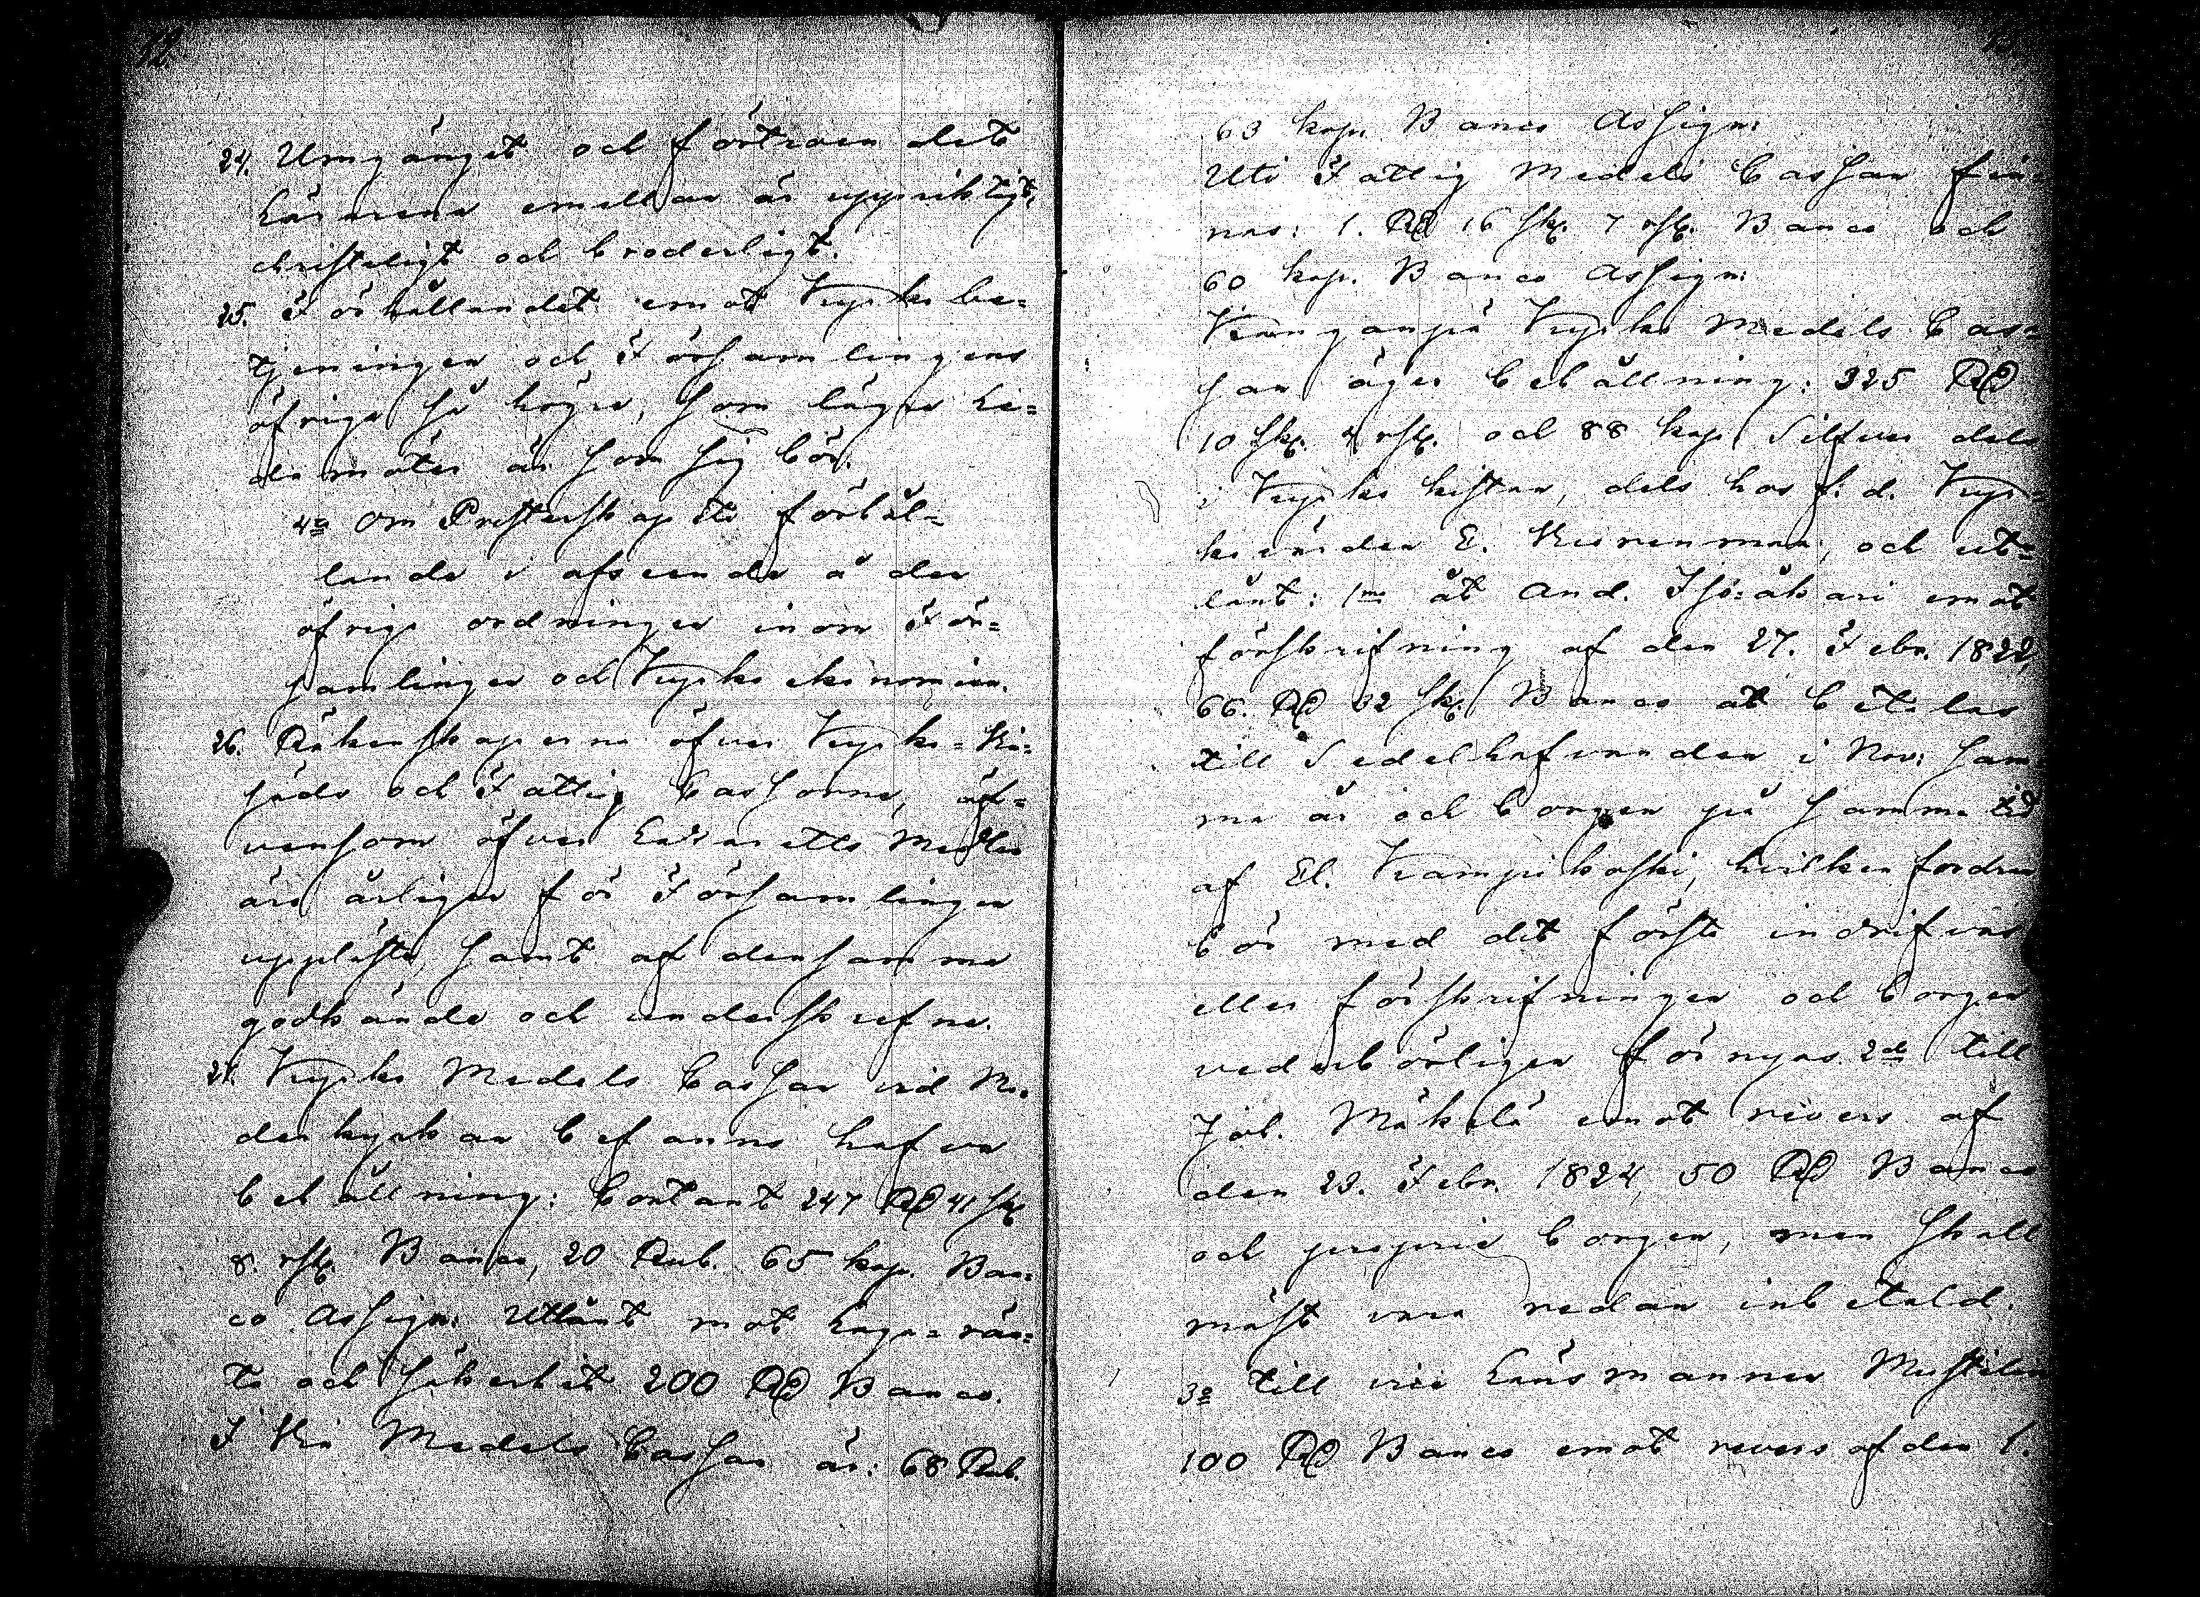 12.
24. Umgänget och förtroendet
Lärarena emellan är uppriktigt,
christeligt och broderligt.
25. Förhållandet emot Kyrko be=
tjeningen och Församlingens
öfrige så högre, som lägre Le=
damöter är som sig bör.
4o Om Presterskapets förhål=
lande i afseende å den
öfrige ordningen inom För=
samlingen och Kyrko ekonomien.
26. Räkenskaperne öfver Kyrko=
och Fattig Cassorne, äf=
vensom öfver Lazaretts Medlen
äro årligen för Församlingen
uppläste, samt af densamma
godkände och underskrefne.
27. Kyrko Medels Cassan vid Mo=
derkyrkan befanns hafva
behållning: Contant 247 RD 41 sk.
8. rst. Banco, 20 Rub. 65 kop. Ban=
co Assign: Utlånt mot Laga=rän=
ta och säkerhet 200 RD Banco.
I Medels Cassan är: 68 Rub.
63 kop. Banco Assign:
Uti Fattig Medels Cassan fin=
nas: 1. RD 16 sk. 7 rst. Banco och
60 kop. Banco Assign:
Kyrko Medels Cas=
san äger behållning: 325 RD
10 sk. rst. och 88 kop. Silfver dels
i Kyrko kistan, dels hos f. d. Kyr=
ko värden E. och ut=
lånt: 1mo åt And. emot
förskrifning af den 27. Febr. 1822,
66. RD 32 sk. Banco at betalas
till Sedelhafvanden i Nov: sam
ma år och borgen på samma tid
af El. hvilken fordran
bör med det första indrifvas
eller förskrifningen och borgen
vederbörligen förnyas. 2do till
Joh. Mäkelä emot revers af
den 23. Febr. 1824, 50 RD Banco
och proprie borgen, men skall
mäst vara redan inbetald.
3o till vice Länsmannen
100 RD Banco emot revers af den 1.